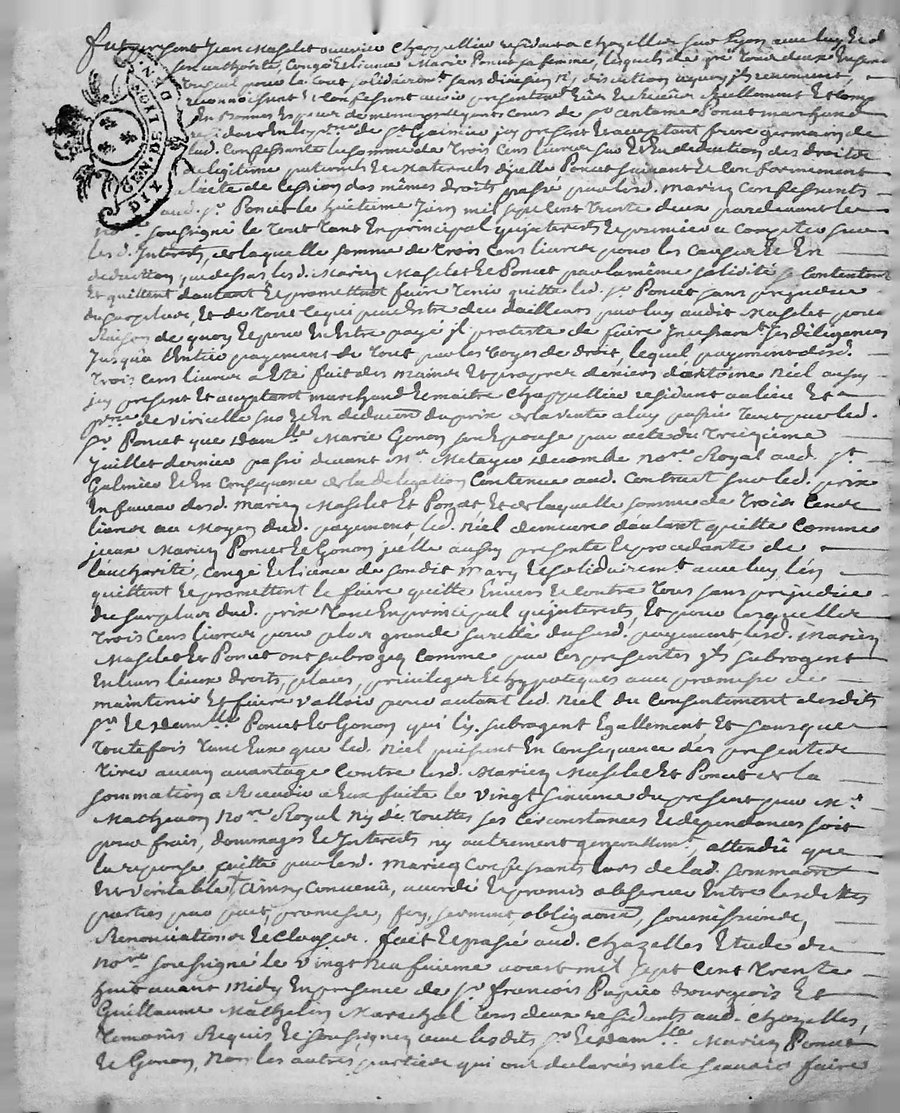 GEN. DE LION
DIX DEN
furent present Jean Maselet ouvrier chappellier residant a chazelles sur Lyon avec luy et de
son authorité, Congé et licence Marie Poncet sa femme, lesquels de gré tous deux ensemble
et seul pour le tout, solidairemt sans division ny discution a quoy ils renoncent,
reconnoissent & Confessent avoir presentemt Eü et Receu Reellement et Comp
En bonnes Especes de monnoye ayant cours de sr antoine Poncet marchand
residant En la ville de St Galmier icy present et acceptant frere germain de
lad. Confessante la somme de Trois Cens livres sur Et En deduction des droits
de legitime paternels et Maternels d'jcelle Poncet suivant et Conformement
l'acte de Cession des mêmes droits passé par lesd. mariez Confessants
aud. sr Poncet le huitieme Juin mil sept Cent Trente deux pardevant le
nore soussigné le Tout Tant En principal qu'jnterets Et premier a Compte sur
lesd. Jnterets, de laquelle somme de Trois Cens livres pour les Causes Et En
deduction que dessus lesd. Mariez Maselet Et Poncet par la même solidité se Contentent
Et quittent d'autant Et promettent faire Tenir quitte led. sr Poncet sans prejudice
du surplus, Et de Tout Ce qui peut Etre deu d'ailleurs par luy audit Maselet pour
Raison de quoy Et pour En Etre payé jl proteste de faire Jncessamt ses diligences
Jusqu'a l'Entier payement de Tout par les Voyes de droit, lequel payement desd.
Trois Cens livres a Eté fait des mains Et propres deniers d'antoine Niel aussy
icy present Et acceptant marchand Et maitre Chappellier residant au lieu Et
psse de viricelle sur Et En deduction du prix de la vente a luy passée Tant par led.
sr Poncet que damlle Marie Gonon son Epouse par acte du Treizieme
Juillet dernier passé devant Me Metayer Decombe nore Royal aud. St
Galmier Et En Consequence de la delegation Contenue aud. Contract sur led. prix
En faveur desd. mariez Maselet Et Poncet, Et de laquelle somme de Trois Cens
livres au Moyen dud. payement led. Niel demeure d'autant quitte Comme
iceux Mariez Poncet Et Gonon jcelle aussy presente Et procedante de
l'authorité, Congé Et licence de son dit Mary Et solidairemt avec luy l'en
quittent Et promettent le faire quitte Envers Et Contre Tous sans prejudice
du surplus dud. prix Tant En principal qu'jnterets, Et pour lesquelles
Trois Cens livres pour plus grande sureté du susd. payement, lesd. Mariez
Maselet Et Poncet ont subrogé Comme par Ces presentes jls subrogent
En leurs lieux droits, places, privileges Et hypoteques avec promesse de
maintenir Et faire valloir pour autant led. Niel du Consentement desdits
sr Et damlle Poncet Et Gonon qui l'y subrogent Egallement, Et sans que
Toutefois l'une l'une que led. Niel puissent En Consequence des presentes
Tirer aucun avantage Contre lesd. Mariez Maselet Et Poncet de la
sommation a Recevoir a Eux faite le Vingt sixieme du present par Me
Mathevon Nore Royal Ny de Touttes ses Circonstances Et dependances soit
pour frais, dommages Et Jnterets ny autrement generallemt, attendu que
la reponse faitte par lesd. Mariez Confessants lors de lad. sommaon
Est veritable, ainsy Convenu, accordé Et promis observer Entre lesdittes
parties par pact, promesse, foy, serment obligaons, soumissions,
Renonciations Et Clauses. fait Et passé aud. Chazelles Etude du
nore soussigné le Vingt neufieme aoust mil sept Cent Trente
huit avant Midy En presence de sr françois Papier bourgeois Et
Guillaume Mathelin Marechal Tous deux residents aud. Chazelles,
Temoins Requis Et soussignez avec lesdits sr Et damlle Mariez Poncet
Et Gonon, Non les autres parties qui ont declarés ne le scavoir faire